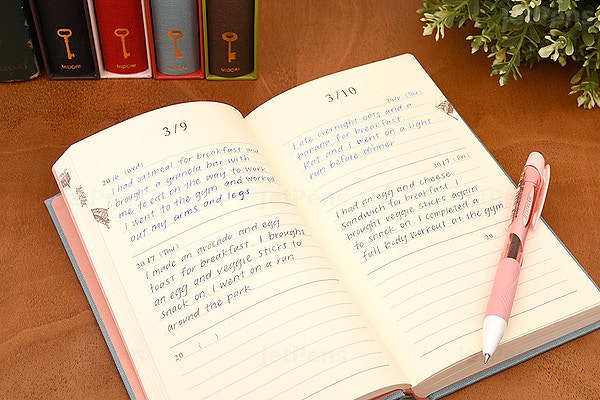 MIDORI
MIDORI
MIDORI
MIDORI
3/9
2016 (Wed)
I had oatmeal for breakfast and
brought a granola bar with
me to eat on the way to work
I went to the gym and worked
out my arms and legs
2017 (Thu)
I made an avocado and egg
toast for breakfast. I brought
an egg and veggie sticks to
snack on. I went on a run
around the park.
20 ( )
3/10
2016 (Thu)
I ate overnight oats and a
banana for breakfast.
Kat and I went on a light
run before dinner
2017 (Fri)
I had an egg and cheese
sandwich for breakfast. I
brought veggie sticks again
to snack on. I completed a
full body workout at the gym
20
JetPens